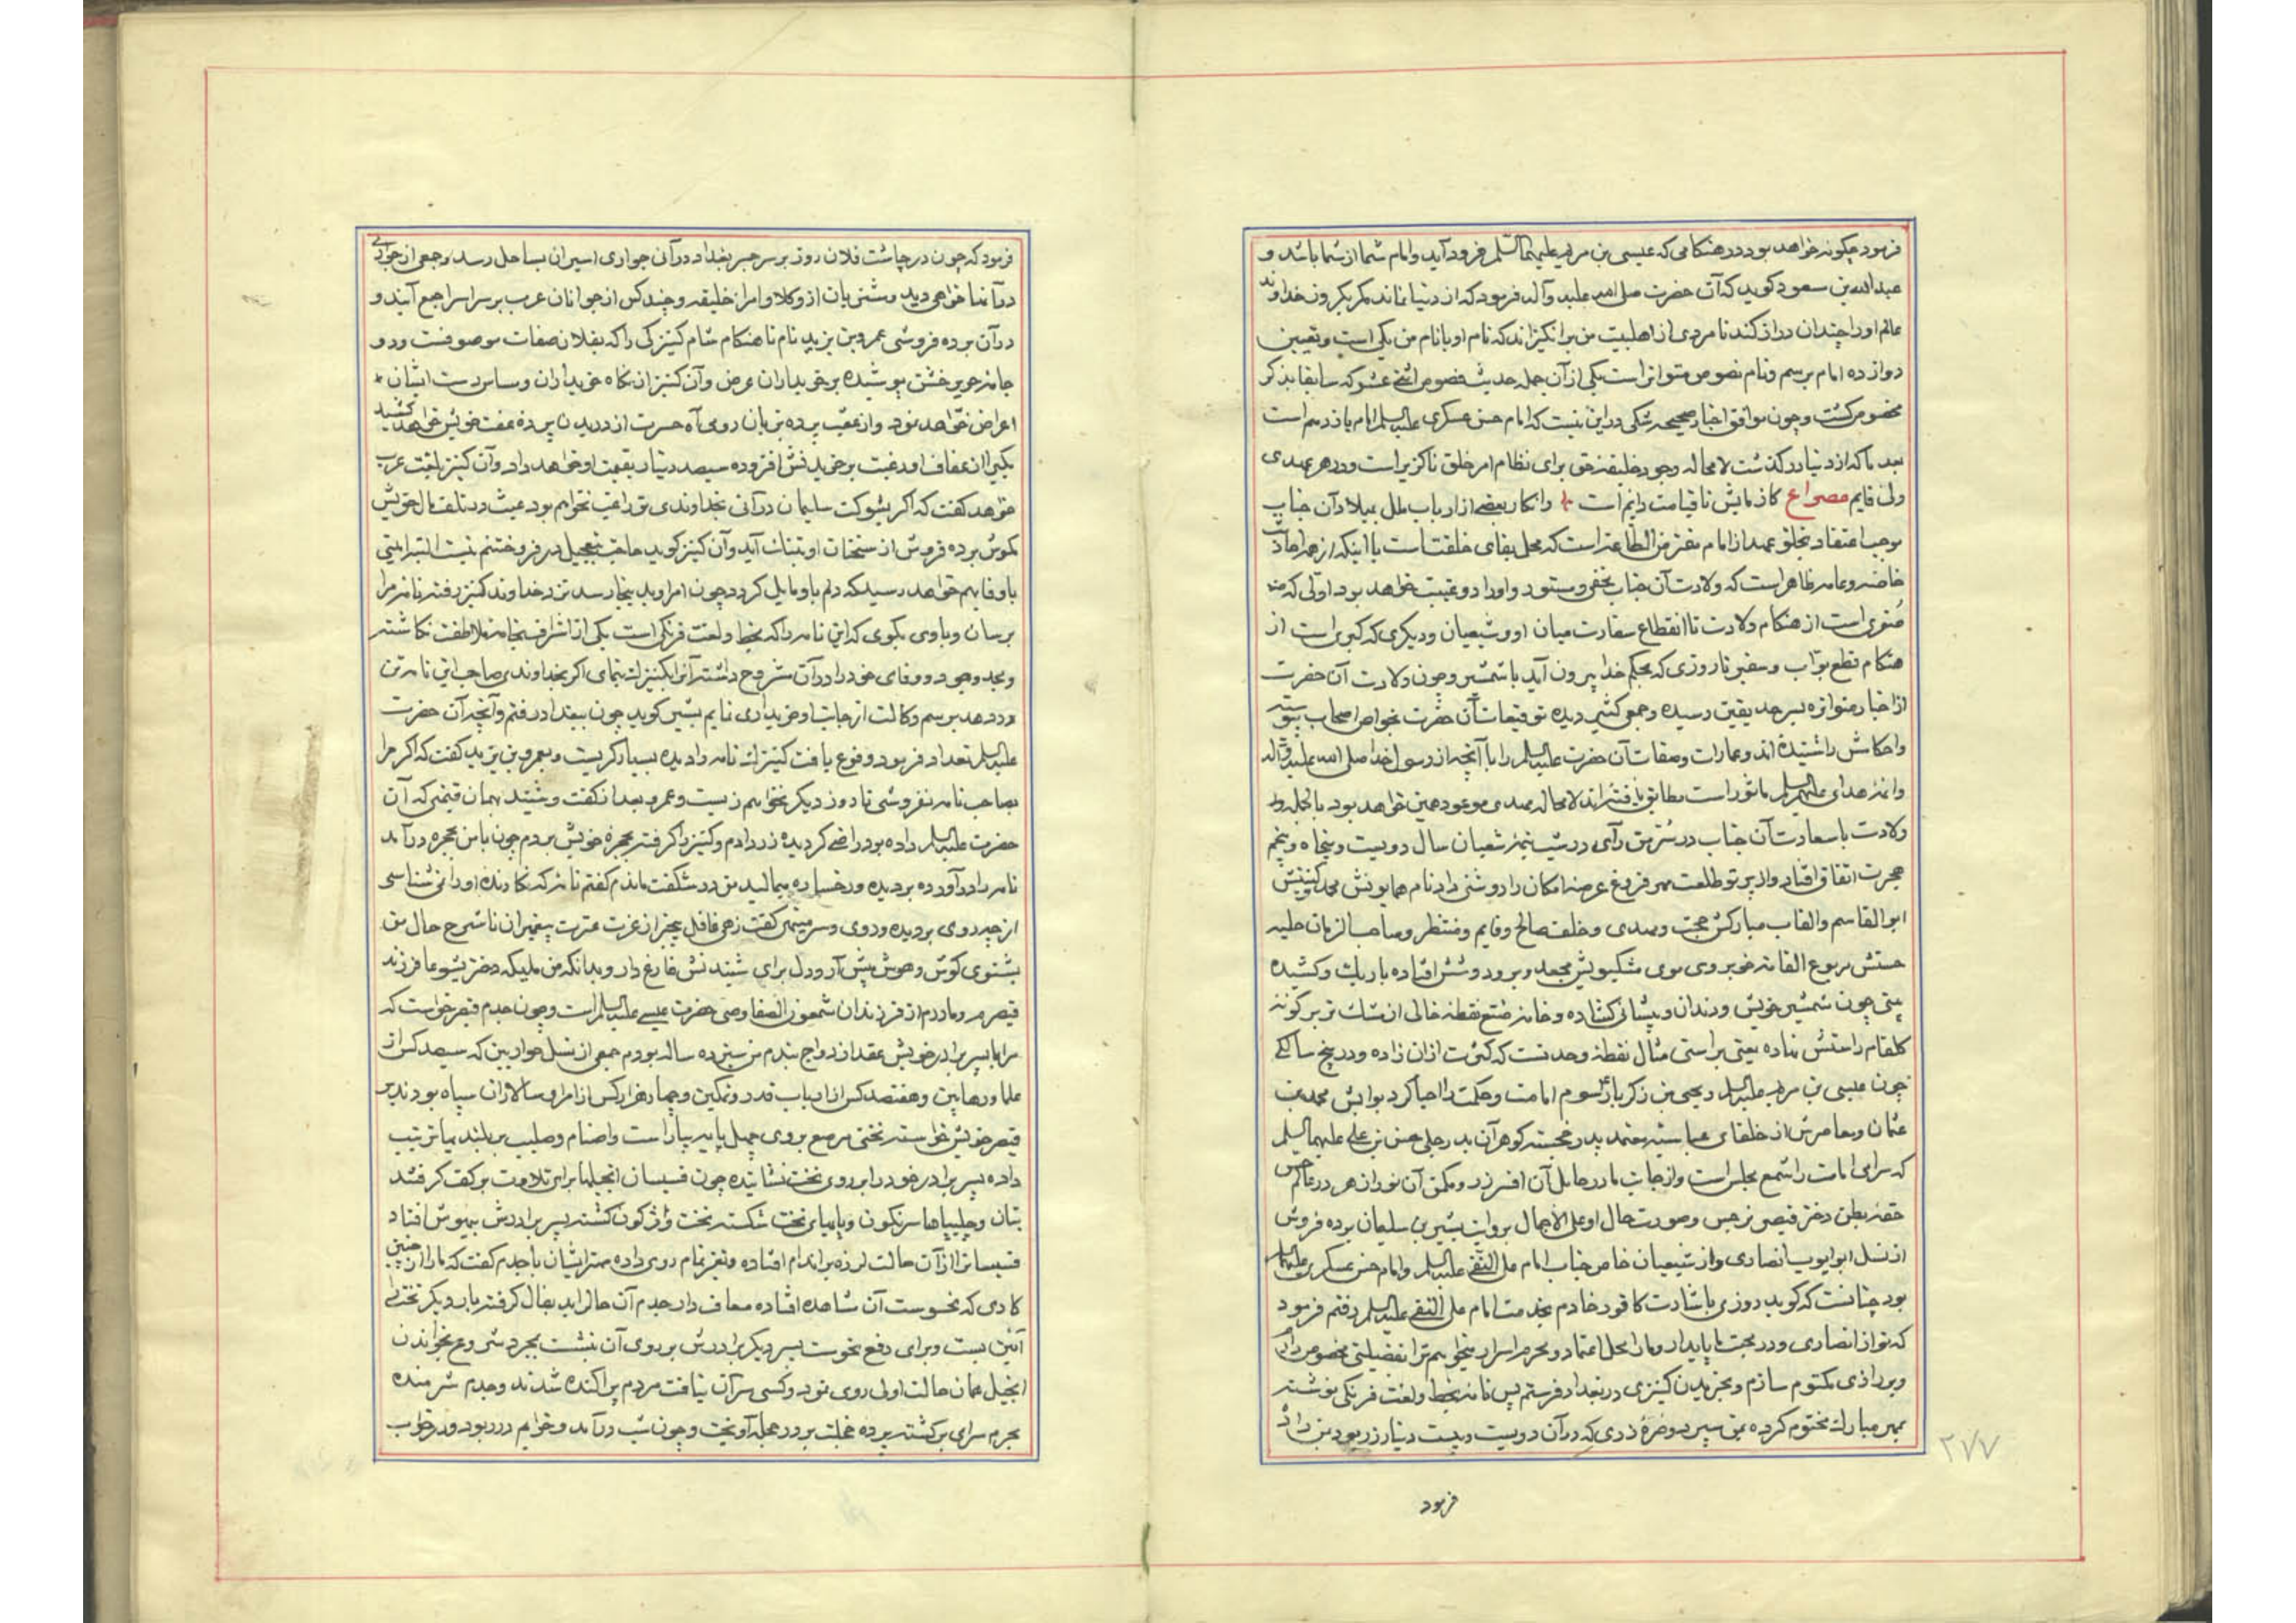 فرمود چگونه خواهد بود در هنگامی که عیسی بن مریم علیهما السلم فرود آید و امام شما از شما باشد و
عبدالله بن سعود کوید که آن حضرت صلی الله علیه و آله فرمود که از دنیا نماند مگر یکروز خداوند
عالم او را چندان دراز کند تا مردی از اهلبیت من برانگیزاند که نام او با نام من یکی است و تعیین
دوازده امام برسم و نام نصوص متواتر است یکی از آن جمله حدیث نصوص اثنی عشر که سابقا بذکر
مخصوص کشت و چون موافق اخبار صحیحه شکی در این نیست که امام حسن عسکری علیه السلم امام یازدهم است
بعد ما که از دنیا در کذشت لا محاله وجود خلیفه حق برای نظام امر خلق ناکزیر است و در هر عهدی
ولی قایم مصراع کازمایش تا قیامت دایم است وانکار بعضی از ارباب ملل بمیلاد آن جناب
موجب اعتقاد بخلو عهد از امام مفترض الطاعه است که مخل بقای خلقت است با اینکه از هر احادیث
خاصه و عامه ظاهر است که ولادت آن جناب مخفی و مستور و او را دو غیبت خواهد بود اولی که
صغری است از هنکام ولادت تا انقطاع سفارت میان او و شیعیان و دیکری که کبری است از
هنکام قطع نواب و سفیر تا روزی که بحکم خدا بیرون آید با شمشیر و چون ولادت آن حضرت
از اخبار متواتره بسر حد یقین رسیده و جمع کثیر دیده توقیعات آن حضرت بخواص اصحاب
و احکامش را شنیده اند و عمارات و صفات آن حضرت علیه السلم را با آنچه از رسول خدا صلی الله علیه و آله
و ائمه هدای علیهم السلم ماثور است مطابق یافته اند لا محاله مهدی موعود همین خواهد بود بالجمله
ولادت با سعادت آن جناب در سر من رآی در شب نیمه شعبان سال دویست و پنجاه و پنجم
هجرت اتفاق افتاد و از پرتو طلعت مهر فروغ عرصه امکان را روشنی داد نام همایونش محمد کنیتش
ابوالقاسم و القاب مبارکش حجت و مهدی و خلف صالح و قایم و منتظر و صاحب الزمان حلیه
حسنش مربوع القامه خوبروی موی مشکبویش مجعد و بر دوشش افتاده باریک و کشیده
بینی چون شمشیر خویش و دندان و پیشانی کشاده و خامه صنع نقطه خالی از مشک تر بر کونه
کلفام راستش نهاده یعنی براستی مثال نقطه وحدتست که کثرت ازان زاده و در پنج سالکی
چون عیسی بن مریم علیه السلم و یحیی بن زکریا رسوم امامت و حکمت را احیا کرد بوابش محمد بن
عثمان و معاصرش از خلفای عباسیه معتمد پدر خجسته کوهر آن بدر جلی حسن بن علی علیهما السلم
که سرای امامت را شمع مجلس است و از جانب مادر حامل آن افسر زر و مکمن آن نور ازهر در عالم
حقه بطن دختر قیصر نرجس و صورت حال او علی الاجمال بروایت بشیر بن سلیمان برده فروش
از نسل ابو ایوب انصاری و از شیعیان خاص جناب امام علی النقی علیه السلم و امام حسن عسکری علیهما السلم
بود چنانست که کوید روزی باشارت کافور خادم بخدمت امام علی النقی علیه السلم رفتم فرمود
که تو از انصاری و در محبت ما پایدار و ما را محل اعتماد و محرم اسرار میخواهم ترا بفضیلتی مخصوص دارم
و براز ی مکتوم سازم و بخریدن کنیزی در بغداد فرستم پس نامه بخط و لغت فرنکی نوشته
بمهر مبارک مختوم کرده بمن سپرد و صره زری که در آن دویست و بیست دینار زر بود بمن داد
۲۷۷
فرمود
فرمود که چون در چاشت فلان روز بر سر جسر بغداد در آئی جواری اسیران بساحل رسد و جمعی از جواری
در آنها خواهی دید و مشتریان از وکلا و امرا خلیفه و چند کس از جوانان عرب بر سر اسرا جمع آیند و
در آن برده فروشی عمرو بن یزید نام تا هنکام شام کنیزکی را که بفلان صفات موصوفست و دو
جامه حریر خشن پوشیده بر خریداران عرض و آن کنیز از نکاه خریداران و مساس دست ایشان
اعراض خواهد نمود و از عقب پرده بزبان رومی آه حسرت از دریدن پرده عفت خویش خواهد کشید
یکی از عفاف او رغبت بر خریدنش افزوده سیصد دینار بقیمت او خواهد داد و آن کنیز بلغت عرب
خواهد کفت که اگر بشوکت سلیمان در آئی بخداوندی تو راغب نخواهم بود عبث در تلف مال خویش
مکوش برده فروش از سخنان او بتنک آید و آن کنیز کوید حاجت بتعجیل در فروختنم نیست البته امینی
با وفا بهم خواهد رسید که دلم باو مایل کردد چون امر او بدینجا رسد نزد خداوند کنیز رفته نامه مرا
برسان و با وی بکوی که این نامه را که بخط و لغت فرنکی است یکی از اشراف بخامه ملاطفت نکاشته
و مجد و جود و وفای خود را در آن مشروح داشته آنرا بکنیزک بنمای اکر بخداوندی صاحب این نامه تن
در دهد برسم وکالت از جانب او خریداری نمایم بشیر کوید چون ببغداد رفتم و آنچه آن حضرت
علیه السلم تعداد فرمود وقوع یافت کنیزک نامه را دیده بسیار کریست و بعمرو بن یزید کفت که اکر مرا
بصاحب نامه نفروشی تا روز دیکر نخواهم زیست و عمرو بعد از کفت و شنید بهمان قیمتی که آن
حضرت علیه السلم داده بود راضی کردیده زر دادم و کنیز را کرفته بحجره خویش بردم چون با من بحجره در آمد
نامه را در آورده بر دیده و رخساره میمالید من در شکفت ماندم کفتم نامه که نکارنده او را نمی شناسی
از چه روی بر دیده و روی و سر مینهی کفت زهی غافل بیخبر از عزت عترت پیغمبران تا شرح حال من
بشنوی کوش و هوش پیش آر و دل برای شنیدنش فارغ دار و بدانکه من ملیکه دختر یشوعا فرزند
قیصرم و مادرم از فرزندان شمعون الصفا وصی حضرت عیسی علیه السلم است و چون جدم قیصر خواست که
مرا با پسر برادر خویش عقد ازدواج بندد من سیزده ساله بودم جمعی از نسل حواریین که سیصد کس از
علما و رهابین و هفتصد کس از ارباب قدر و تمکین و چهار هزار کس از امرا و سالاران سپاه بودند
قیصر خویش خواسته تختی مرصع بروی چهل پایه بیاراست و اصنام و صلیب بر بلندیها ترتیب
داده پسر برادر خود را بر روی تخت نشانیده چون قسیسان انجیلها برای تلاوت بر کف کرفتند
بتان و چلیپاها سرنکون و پایهای تخت شکسته تخت واژکون کشته پسر برادرش بیهوش افتاد
قسیسان را از آن حالت لرزه بر اندام افتاده و تغیر تمام روی داده مهتر ایشان با جدم کفت که ما را از چنین
کاری که نحوست آن مشاهده افتاده معاف دار جدم آن حال را بد بفال کرفته بار دیکر تختی
آئین بست و برای دفع نحوست پسر دیکر برادرش بر روی آن نشست بمجرد شروع بخواندن
انجیل همان حالت اولی روی نمود و کسی سر آن نیافت مردم پراکنده شدند و جدم شرمنده
بحرم سرای بر کشته پرده خجلت بر در حجله آویخت و چون شب در آمد و خوابم در ربود در خواب